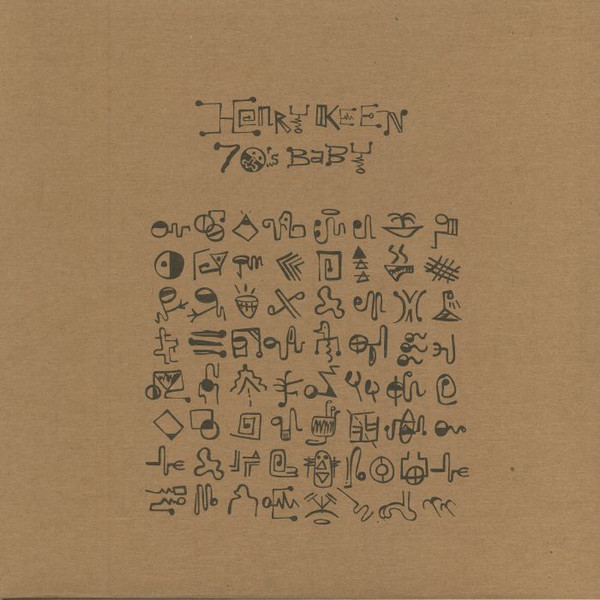 HENRY KEEN
70's BaBY